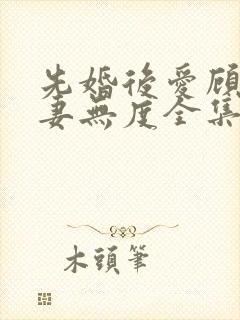 先婚後愛顧
妻無度全集
木頭筆